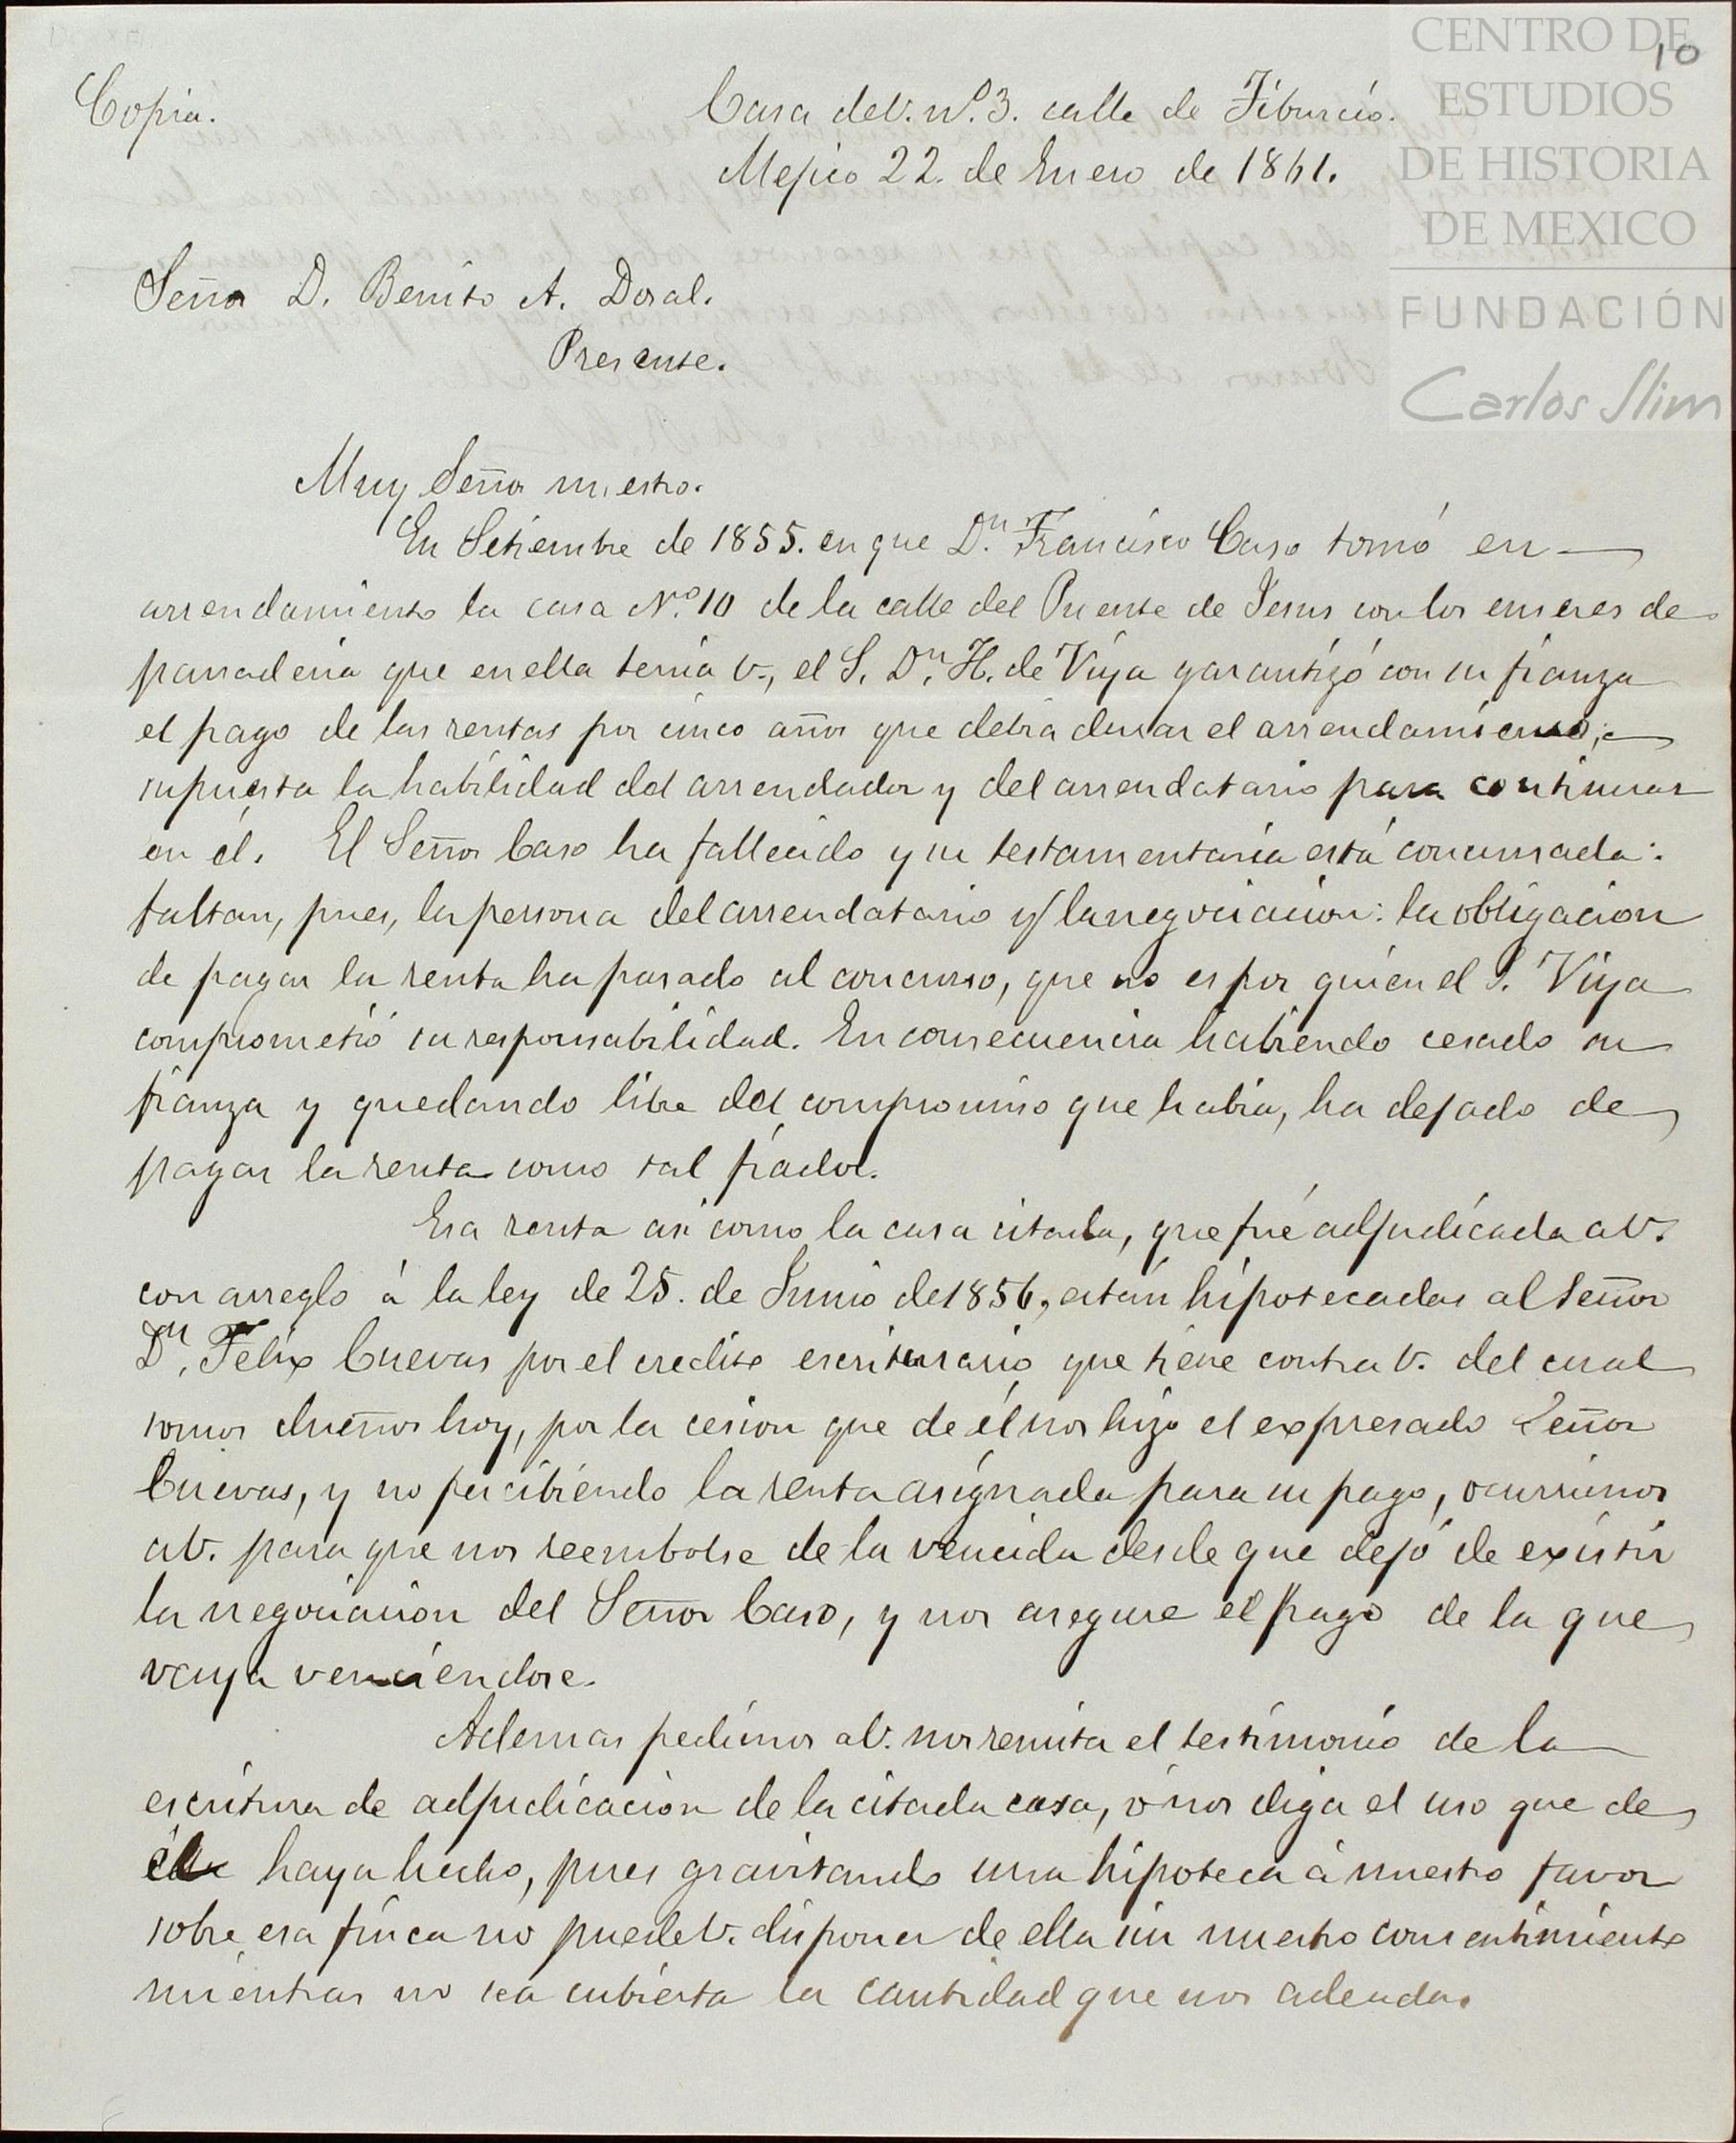 CENTRO DE
ESTUDIOS
DE HISTORIA
DE MEXICO
FUNDACIÓN
Carlos Slim
10
Copia.
Casa de V. nº. 3. calle de Tiburcio.
Mejico 22. de Enero de 1861.
Señor D. Benito A. Doral.
Presente.
Muy Señor nuestro.
En Setiembre de 1855. en que D.n Francisco Caso tomó en
arrendamiento la casa Nº. 10 de la calle del Puente de Jesus con los enseres de
panaderia que en ella tenia V., el S. D.n H. de Viya garantizó con su fianza
el pago de las rentas por cinco años que debia durar el arrendamiento,
supuesta la habilidad del arrendador y del arrendatario para continuar
en él. El Señor Caso ha fallecido y su testamentaría está concursada:
faltan, pues, la persona del arrendatario y la negociacion: la obligacion
de pagar la renta ha pasado al concurso, que no es por quien el S. Viya
comprometió su responsabilidad. En consecuencia habiendo cesado su
fianza y quedando libre del compromiso que habia, ha dejado de
pagar la renta como tal fiador.
Esa renta asi como la casa citada, que fué adjudicada a V.
con arreglo á la ley de 25. de Junio de 1856, están hipotecadas al Señor
D.n Felix Cuevas por el credito escriturario que tiene contra V. del cual
somos dueños hoy, por la cesion que de él nos hizo el expresado Señor
Cuevas, y no percibiendo la renta asignada para su pago, ocurrimos
a V. para que nos reembolse de la vencida desde que dejó de existir
la negociacion del Señor Caso, y nos asegure el pago de la que
vaya venciendose.
Ademas pedimos a V. nos remita el testimonio de la
escritura de adjudicacion de la citada casa, ó nos diga el uso que de
él haya hecho, pues gravitando una hipoteca á nuestro favor
sobre esa finca no puede V. disponer de ella sin nuestro consentimiento
mientras no sea cubierta la cantidad que nos adeuda.